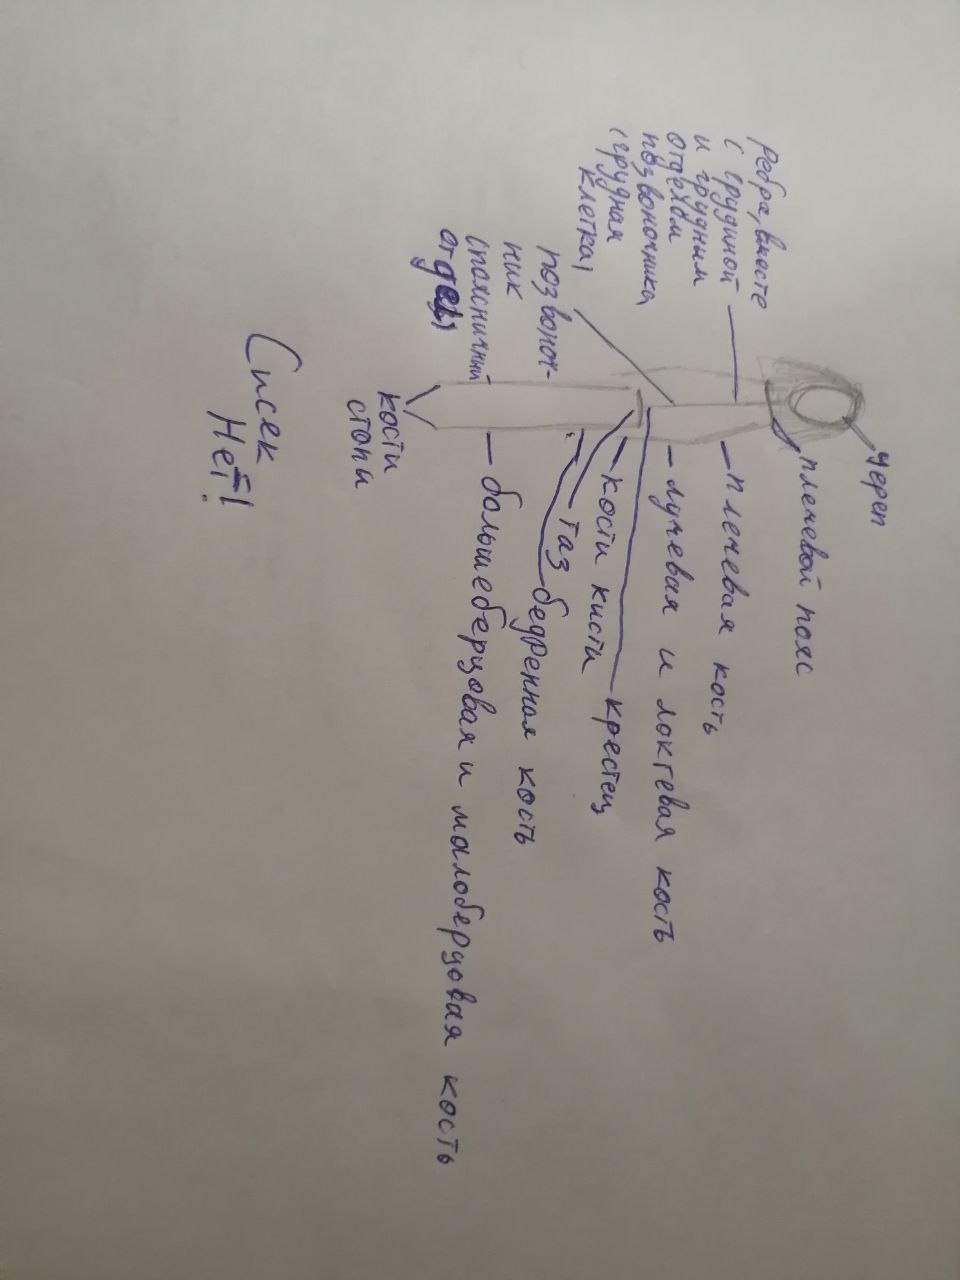 Череп
плечевой пояс
Ребра, вместе
с грудиной
и грудным
отделом
позвоночника
(грудная
клетка)
плечевая кость
лучевая и локтевая кость
крестец
кости кисти
позвоноч-
ник
(поясничный
отдел)
таз
бедренная кость
большеберцовая и малоберцовая кость
кости
стопы
Сисек
Нет!